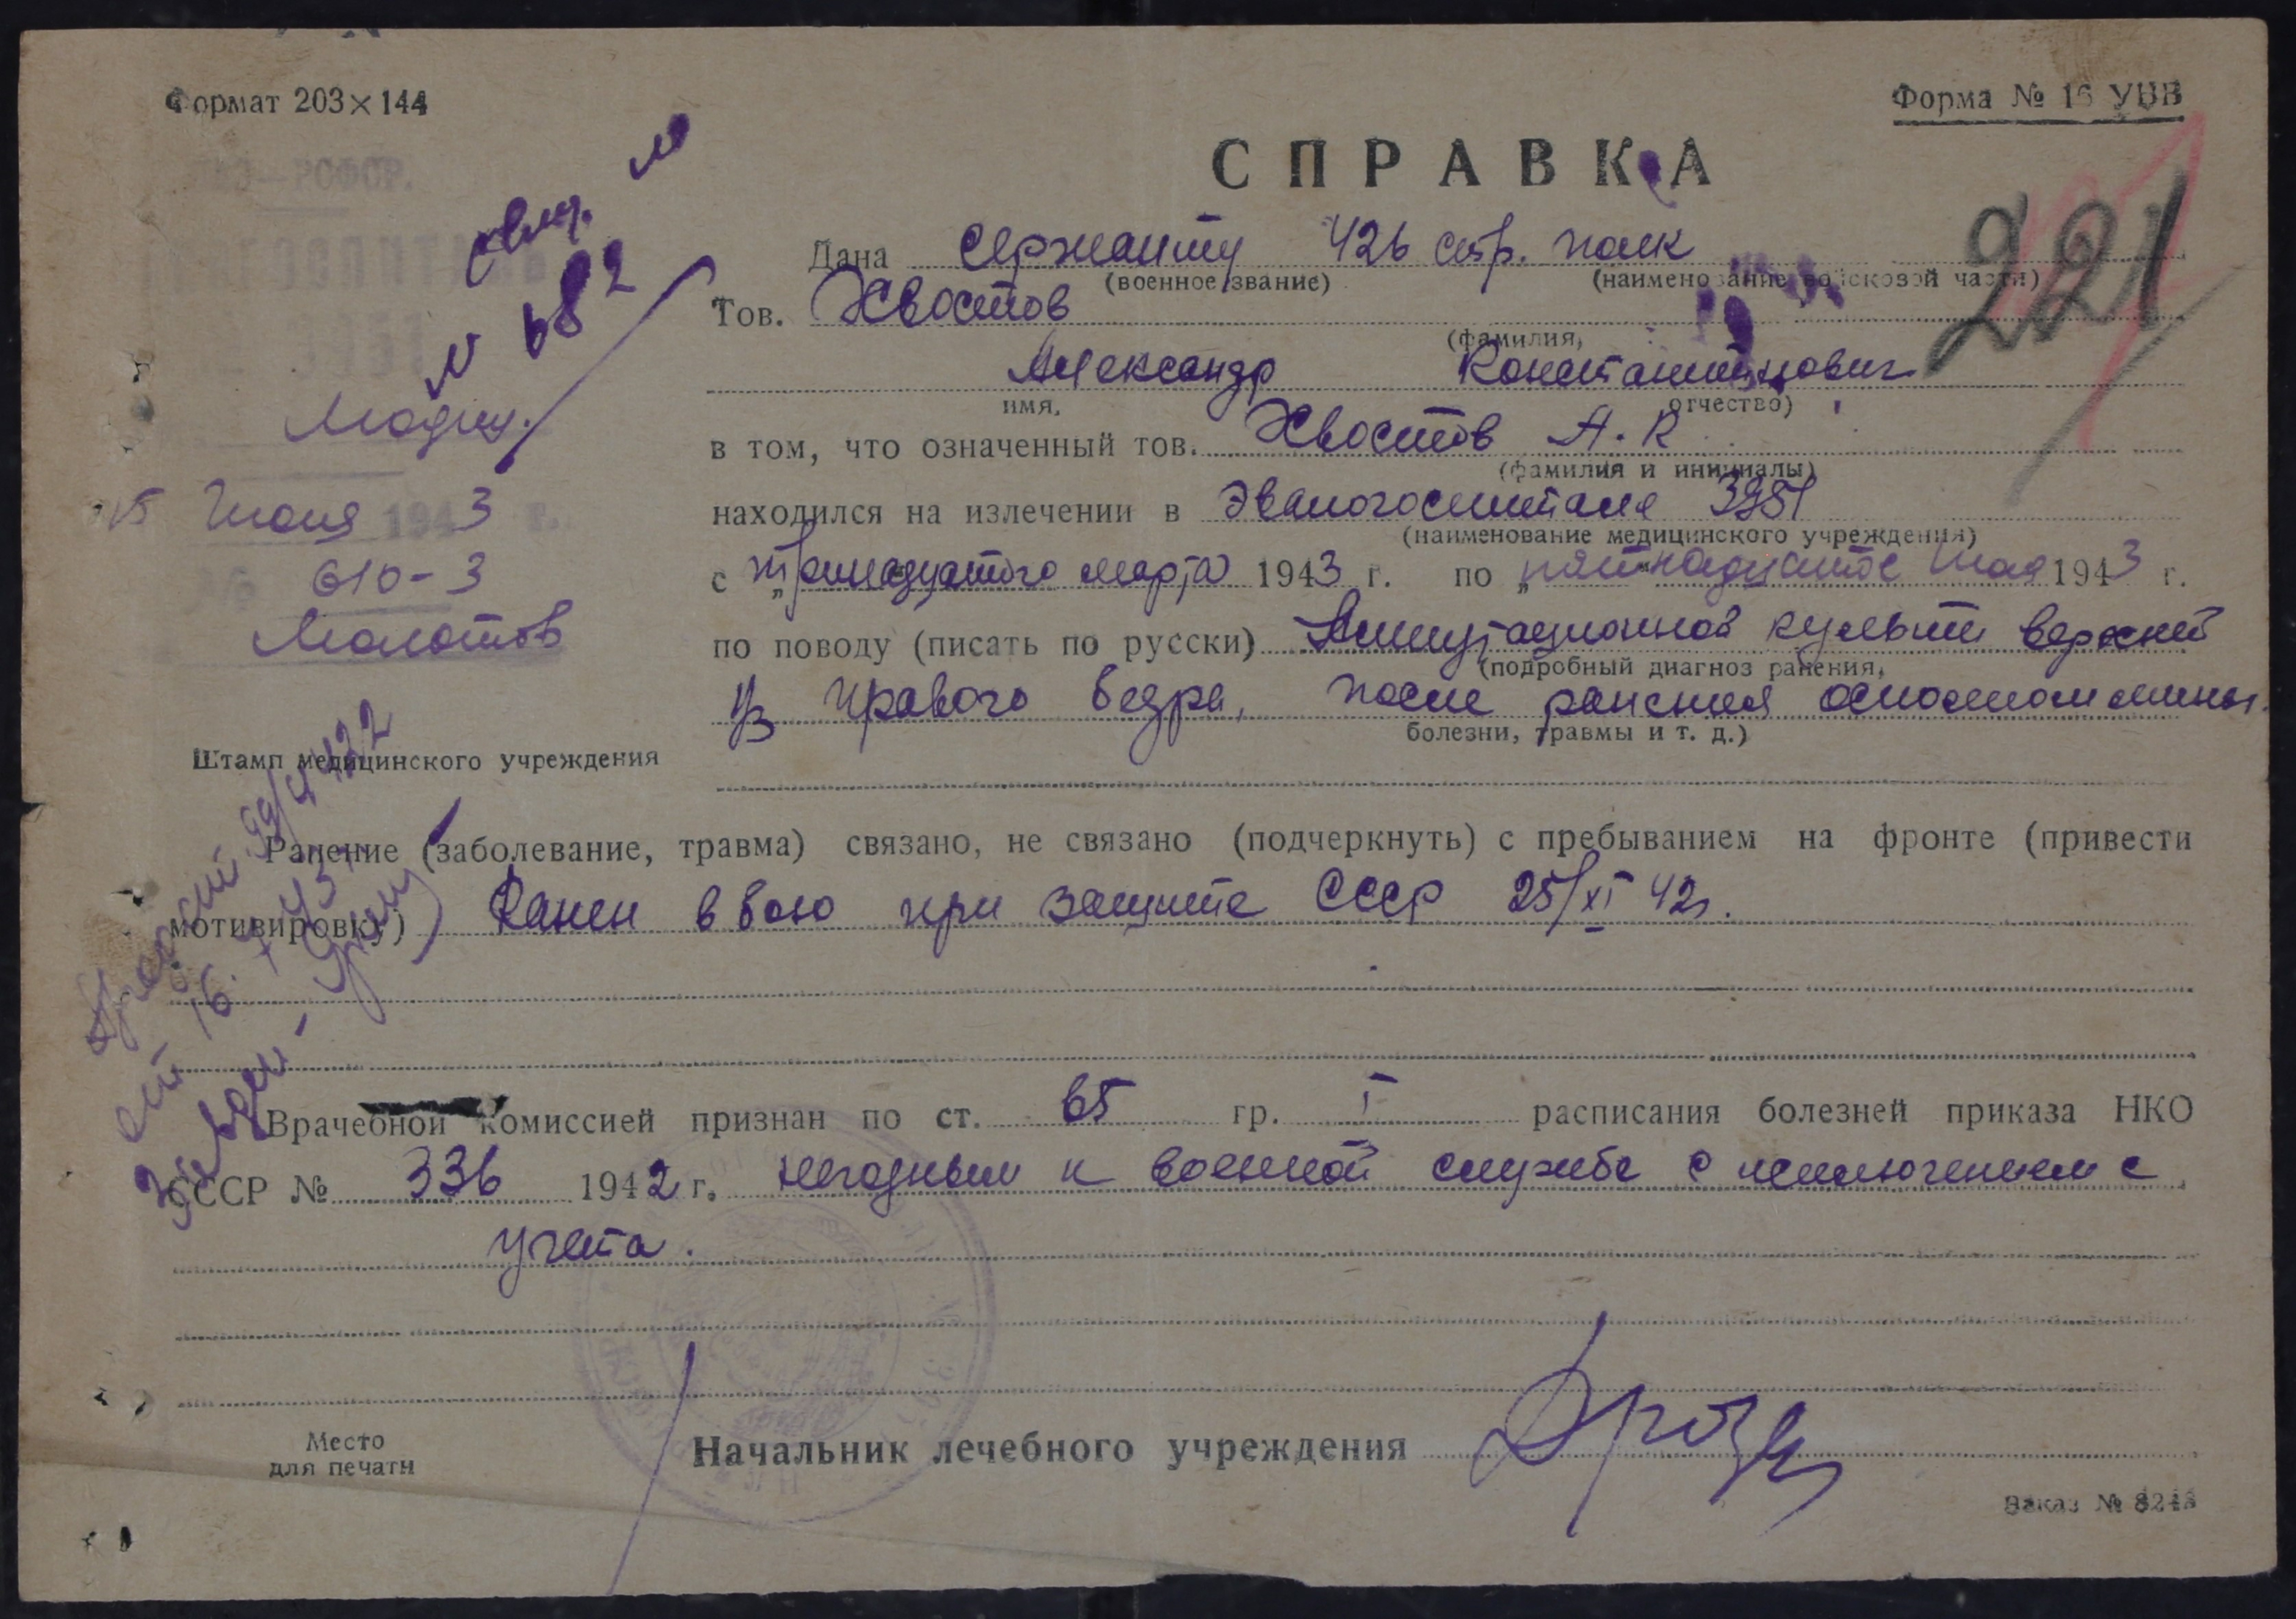 Формат 203×144
Форма № 16 УВВ
СПРАВКА
221
Дана сержанту 426 стр. полк
(военное звание) (наименование войсковой части)
Тов. Хвостов
(фамилия,
Александр Константинович
имя, отчество)
в том, что означенный тов. Хвостов А. К
(фамилия и инициалы)
находился на излечении в Эвакогоспитале
(наименование медицинского учреждения)
с „тринадцатого марта 1943 г. по „пятнадцатое 1943 г.
по поводу (писать по русски) Ампутационной культи верхней
(подробный диагноз ранения,
⅓ правого бедра, после ранения осколком мины.
болезни, травмы и т. д.)
№ 682
15 1943 г.
610-3
Молотов
Штамп медицинского учреждения
Ранение (заболевание, травма) связано, не связано (подчеркнуть) с пребыванием на фронте (привести
мотивировку) Ранен в бою при защите СССР 25/XI 42г.
Врачебной комиссией признан по ст. 65 гр. I расписания болезней приказа НКО
СССР № 336 1942 г. негодным к военной службе с исключением с
учета.
Место
для печати
Начальник лечебного учреждения
Заказ №